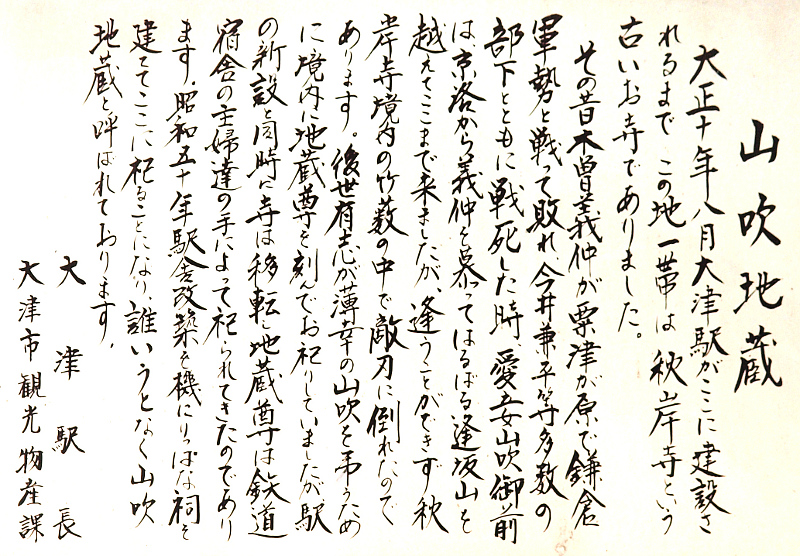 山吹地蔵
大正十年八月大津駅がここに建設さ
れるまでこの地一帯は秋岸寺という
古いお寺でありました。
その昔木曽義仲が粟津が原で鎌倉
軍勢と戦って敗れ、今井兼平等多数の
部下とともに戦死した時、愛妾山吹御前
は、京洛から義仲を慕ってはるばる逢坂山を
越えてここまで来ましたが、逢うことができず秋
岸寺境内の竹薮の中で敵刃に倒れたので
あります。後世有志が薄幸の山吹を弔うため
に境内に地蔵尊を刻んでお祀りしていましたが、駅
の新設と同時に寺は移転し地蔵尊は鉄道
宿舎の主婦達の手によって祀られてきたのであり
ます。昭和五十年駅舎改築を機にりっぱな祠を
建ててここに祀ることになり、誰いうとなく山吹
地蔵と呼ばれております。
大津駅長
大津市観光物産課